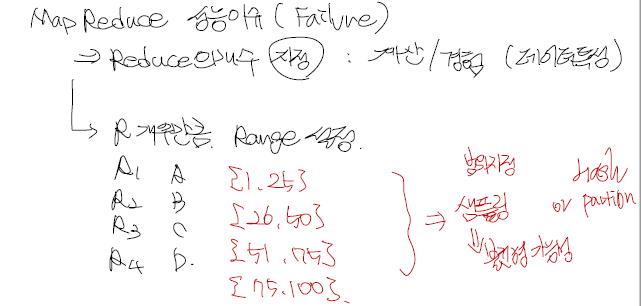 MapReduce 성능이슈 (Failure)
⇒ Reduce의 개수 지정 : 계산/경험 (데이터특성)
→ R 개수만큼 Range 설정.
R1 A [1.25]
R2 B [26.50]
R3 C [51.75]
R4 D. [75.100].
⇒ 범위지정
샘플링
Hash
or partion